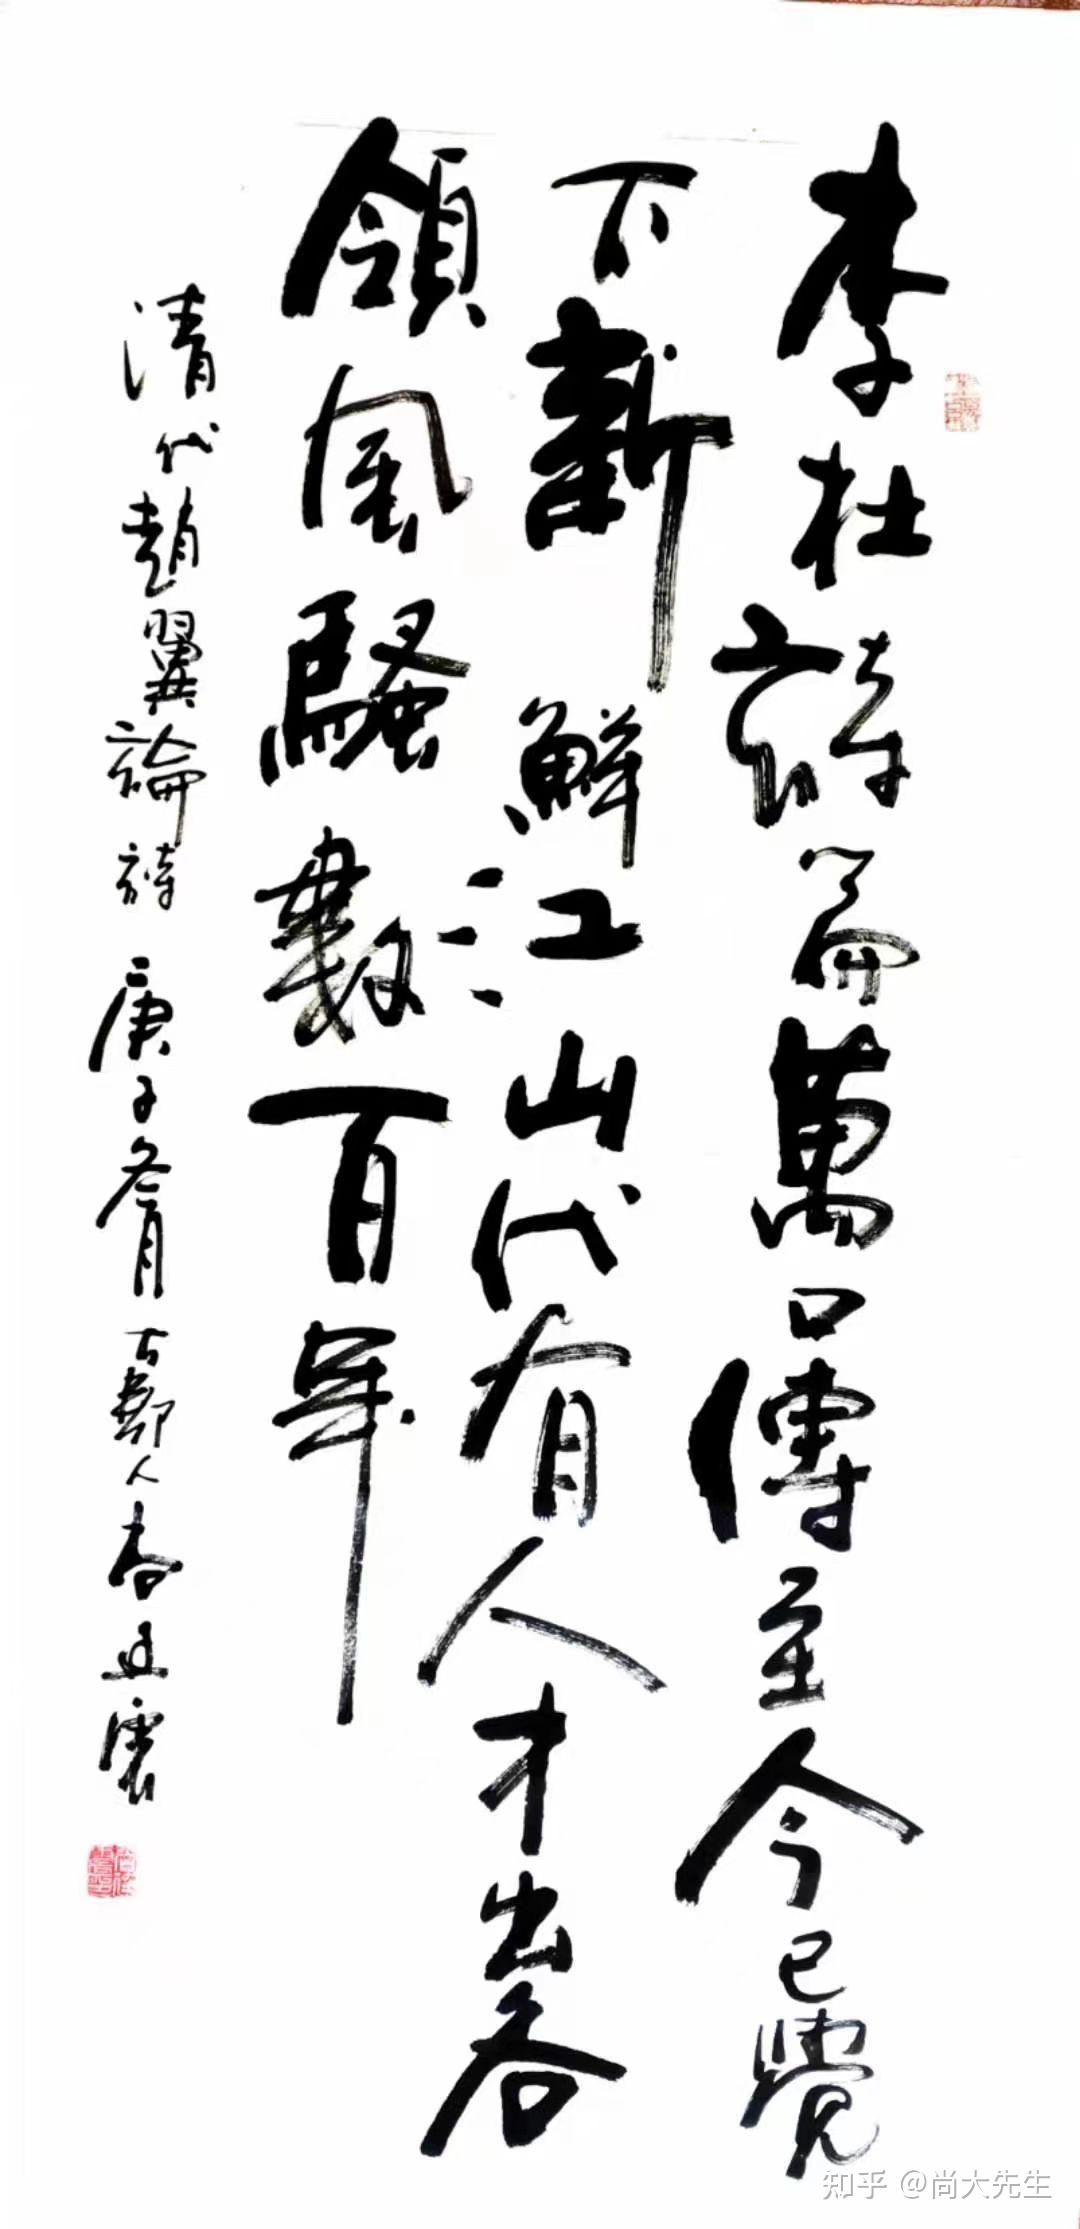 李杜詩篇萬口傳至今已覺
不新鮮江山代有人才出各
領風騷數百年
清代趙翼論詩 庚子冬月古鄭人
知乎 @尚大先生